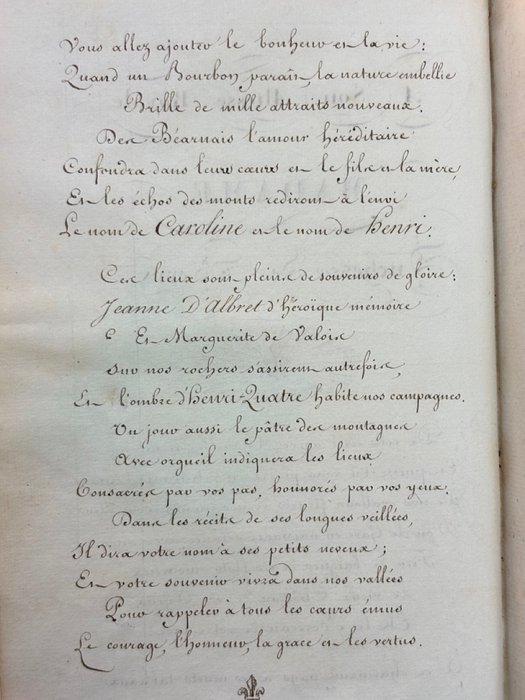 Vous allez ajouter le bonheur et la vie:
Quand un Bourbon paraît, la nature embellie
Brille de mille attraits nouveaux.
Des Béarnais l'amour héréditaire
Confondra dans leurs cœurs et le fils et la mère,
Et les échos des monts rediront à l'envi
Le nom de Caroline et le nom de henri.
Ces lieux sont pleins de souvenirs de gloire:
Jeanne D'Albret d'héroïque mémoire
Et Marguerite de Valois
sur nos rochers s'assirent autrefois,
Et l'ombre d'henri-Quatre habite nos campagnes.
Un jour aussi le pâtre des montagnes
Avec orgueil indiquera les lieux
Consacrés par vos pas, honnorés par vos yeux.
Dans les récits de ses longues veillées,
Il dira votre nom à ses petits neveux;
Et votre souvenir vivra dans nos vallées
Pour rappeler à tous les cœurs émus
Le courage, l'honneur, la grace et les vertus.